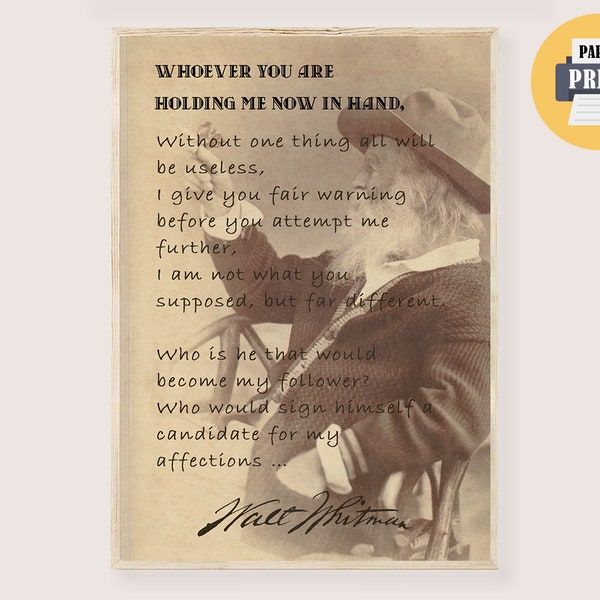 WHOEVER YOU ARE
HOLDING ME NOW IN HAND,
Without one thing all will
be useless,
I give you fair warning
before you attempt me
further,
I am not what you
supposed, but far different.
Who is he that would
become my follower?
Who would sign himself a
candidate for my
affections ...
Walt Whitman